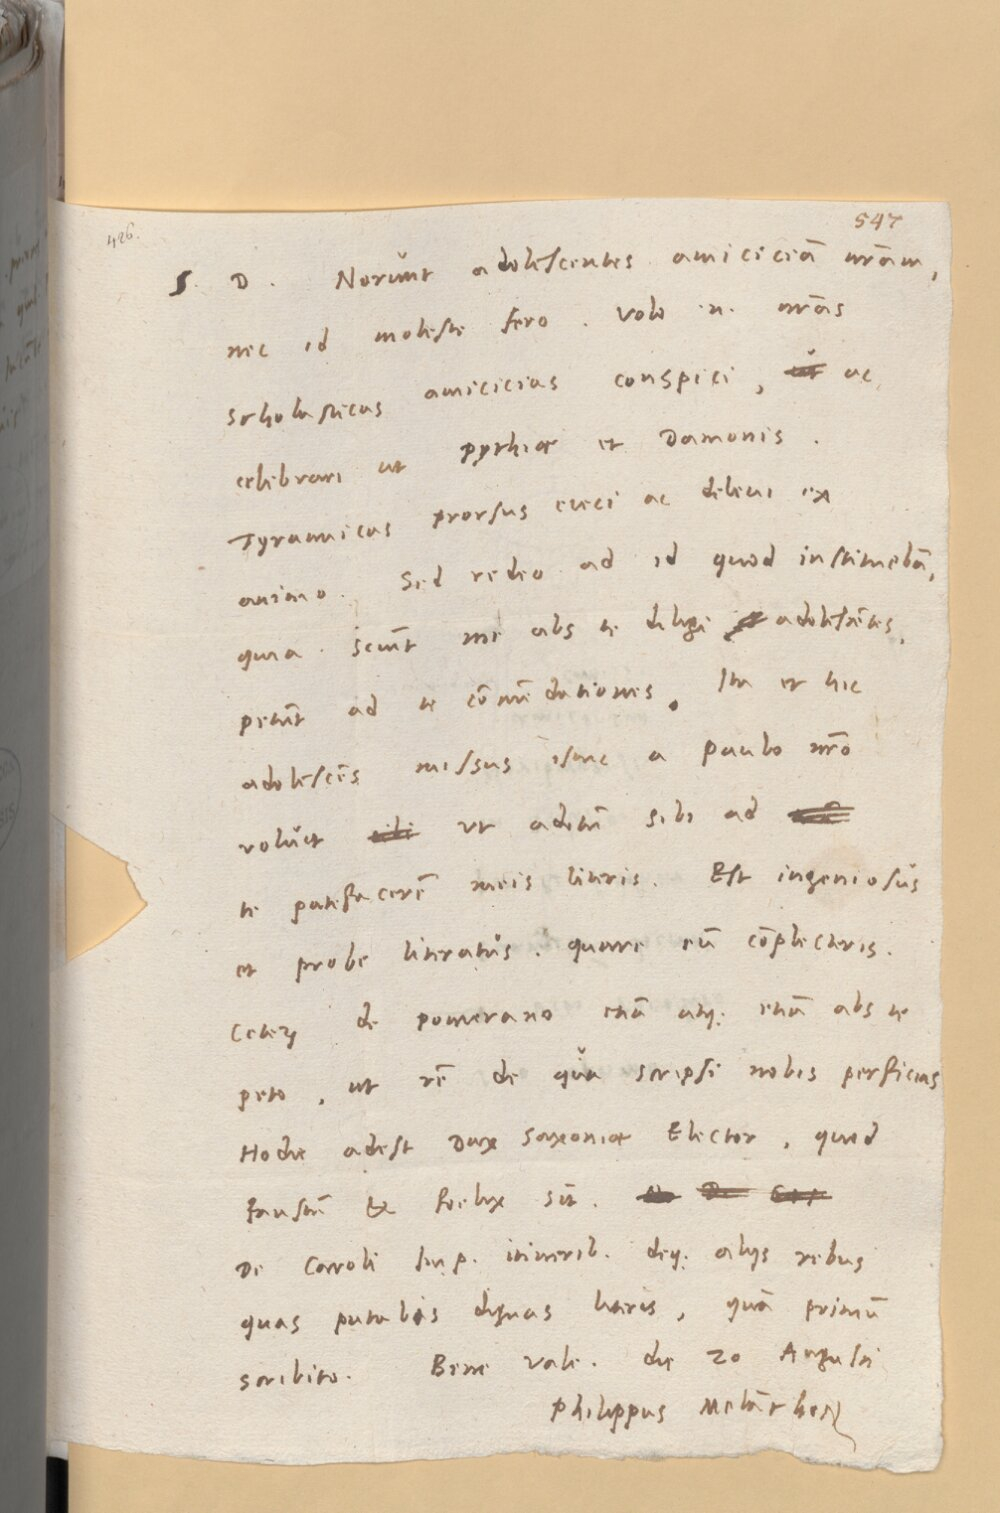 426.
547
S. D. Norŭnt adolescentes amiciciā nr̄am,
nec id moleste fero. Volo n. nr̄as
scholasticas amicicias conspici, ac
celebrari ut Pythiae et Damonis.
Tyrannicas prorsus eieci ac delevi ex
animo. Sed redeo ad id quod institueba̅,
quia sciūt me abs te diligi adolescētes,
petūt ad te cōmēdationes. Ita et hic
adolescēs missus istuc a Paulo nr̄o
voluit ut aditū sibi ad
te patefacerē meis literis. Est ingeniosŭs
et probe literatŭs. quare eū cōplecteris.
Ceterū de pomerano etiā atq; etiā abs te
peto, ut rē de qŭa scripsi nobis perficias
Hodie adest Dux Saxoniae Elector, quod
faustū & foelix sit.
De Caroli Imp. itinerib. deq; alijs rebus
quas putabis dignas literis, quā primū
scribito. Bene vale. die 20 Augusti
Philippus Melāthon